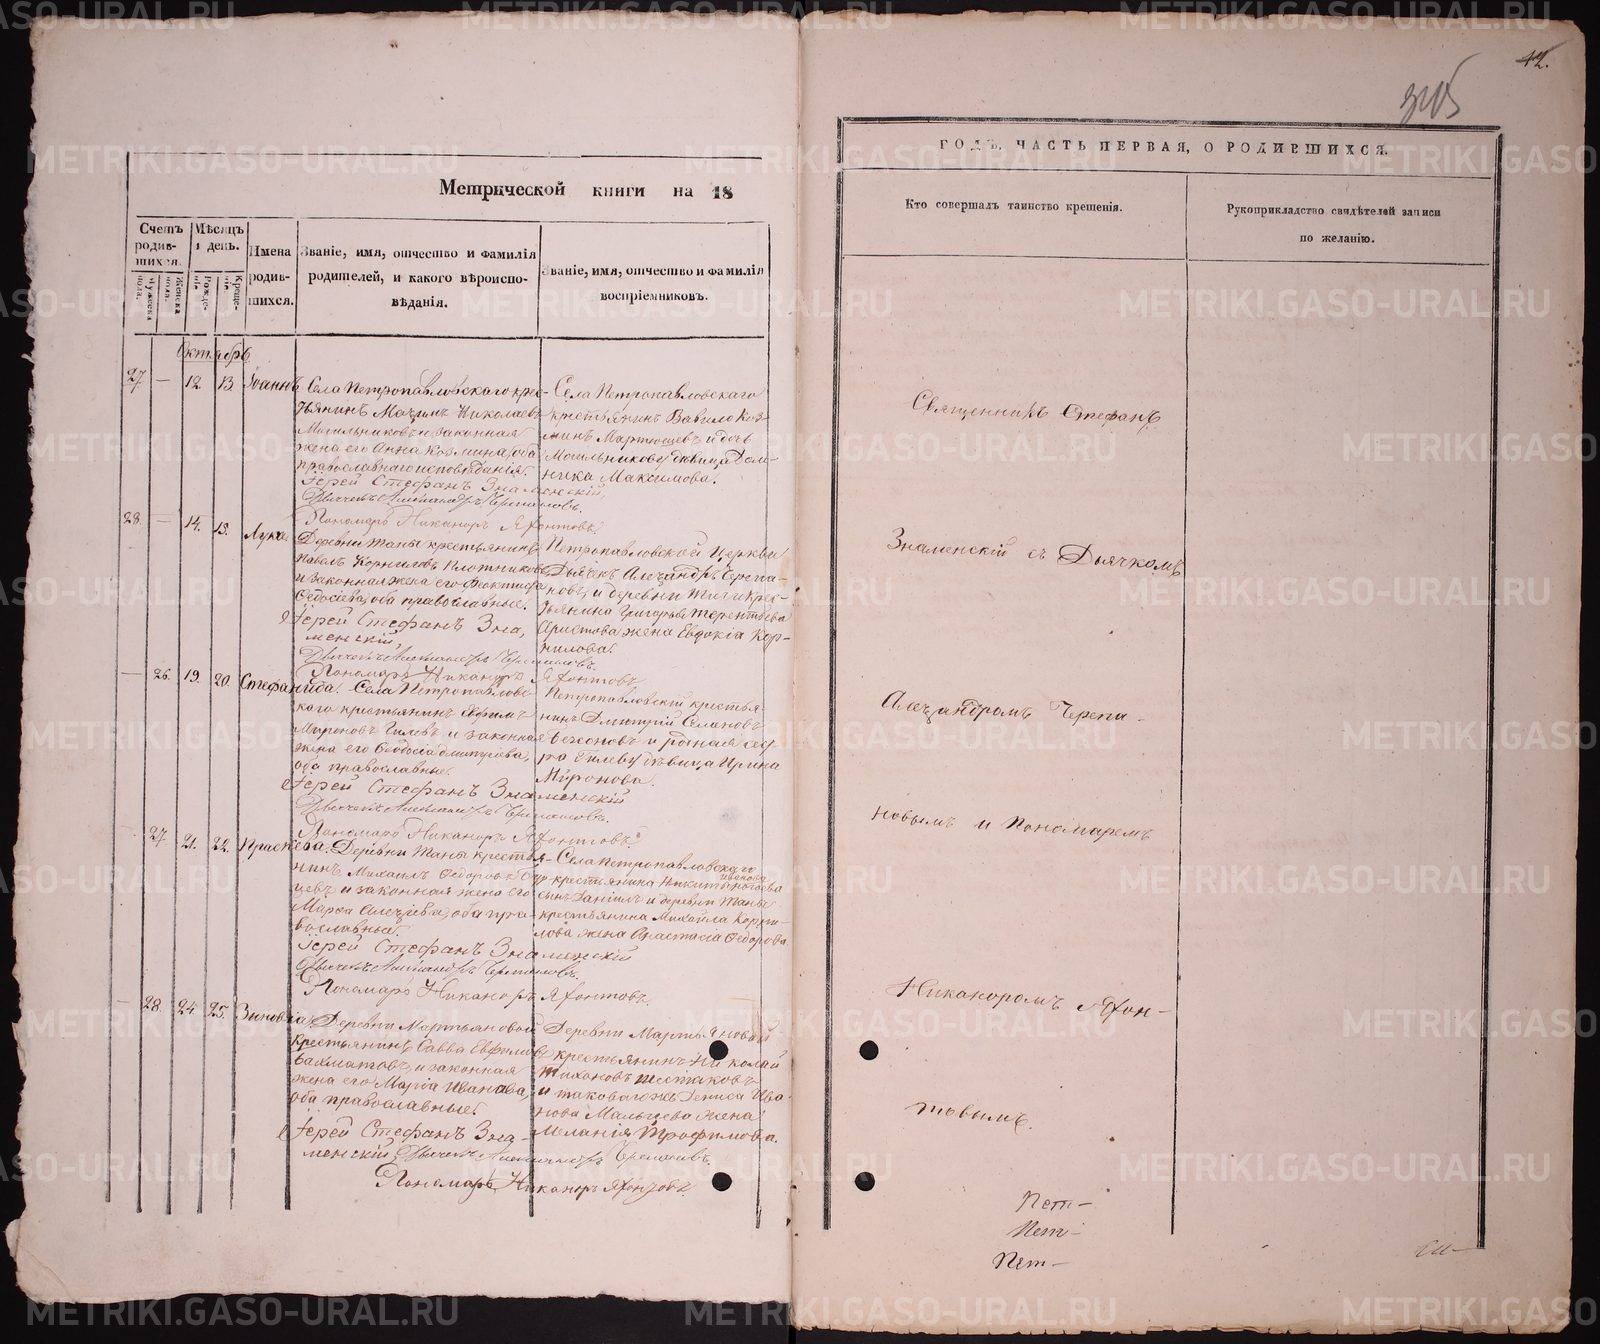 42.
305
Метрической книги на 18
Счетъ родив-шихся.
Мѣсяцъ и день.
Имена родив-шихся.
Званіе, имя, отчество и фамилія родителей, и какого вѣроиспо-вѣданія.
Званіе, имя, отчество и фамилія воспріемниковъ.
Мужеска пола.
Женска пола.
Рожде-нія.
Креще-нія.
Октябрь
27. — 12. 13. Іоаннъ
Села Петропавловскаго крес-
тьянинъ Максимъ Николаевъ
Могильниковъ и законная
жена его Анна Козмина, оба
православнаго исповѣданія.
Іерей Стефанъ Знаменскій
Дьячекъ Александръ Черепановъ.
Пономарь Никаноръ Яхонтовъ
Села Петропавловскаго
крестьянинъ Вавило Коз-
минъ Мартюшевъ и дочь
Могильникову девица Дом-
ника Максимова.
28. — 14. 15. Лука
Деревни Таны крестьянинъ
Павелъ Корниловъ Плотниковъ
и законная жена его Феоктиста
Федосіева, оба православные.
Іерей Стефанъ Зна-
менскій
Дьячекъ Александръ Черепановъ.
Пономарь Никаноръ Яхонтовъ
Петропавловской Церкви
Дьячекъ Александръ Черепа-
новъ, и деревни крес-
тьянина Григорья Терентьева
Аристова жена Евдокія Кор-
нилова.
— 26. 19. 20. Стефанида.
Села Петропавловс-
каго крестьянинъ Ефимъ
Мироновъ Гилевъ и законная
жена его Федосья Дмитріева,
оба православные.
Іерей Стефанъ Знаменскій
Дьячекъ Александръ Черепановъ.
Пономарь Никаноръ Яхонтовъ
Петропавловскій крестья-
нинъ Дмитрій
и родная сес-
тра Гилеву дѣвица Ирина
Миронова.
— 27. 21. 22. Праскева.
Деревни Таны крестья-
нинъ Михаилъ Федоровъ
и законная жена его
Марѳа Алексіева, оба пра-
вославные.
Іерей Стефанъ Знаменскій
Дьячекъ Александръ Черепановъ.
Пономарь Никаноръ Яхонтовъ.
Села Петропавловскаго
крестьянина Никиты Иванова
сынъ Даніилъ и деревни Таны
крестьянина Михайла Корни-
лова жена Анастасія Федорова
— 28. 24. 25. Зиновія
Деревни Мартьяновой
крестьянинъ Савва Евфимовъ
Бахматовъ, и законная
жена его Марѳа Иванова,
оба православные.
Іерей Стефанъ Зна-
менскій Дьячекъ Александръ Черепановъ.
Пономарь Никаноръ Яхонтовъ.
Деревни Мартьяновой
крестьянинъ Николай
Тихоновъ Шестаковъ
и таковагожъ Дениса Ива-
нова Мальцева жена
Меланія Трофимова.
ГОДЪ. ЧАСТЬ ПЕРВАЯ, О РОДИВШИХСЯ.
Кто совершалъ таинство крещенія.
Рукоприкладство свидѣтелей записи по желанію.
Священникъ Стефанъ
Знаменскій съ Дьячкомъ
Александромъ Черепа-
новымъ и Пономаремъ
Никаноромъ Яхон-
товымъ.
Пет-
Пет-
Пет-